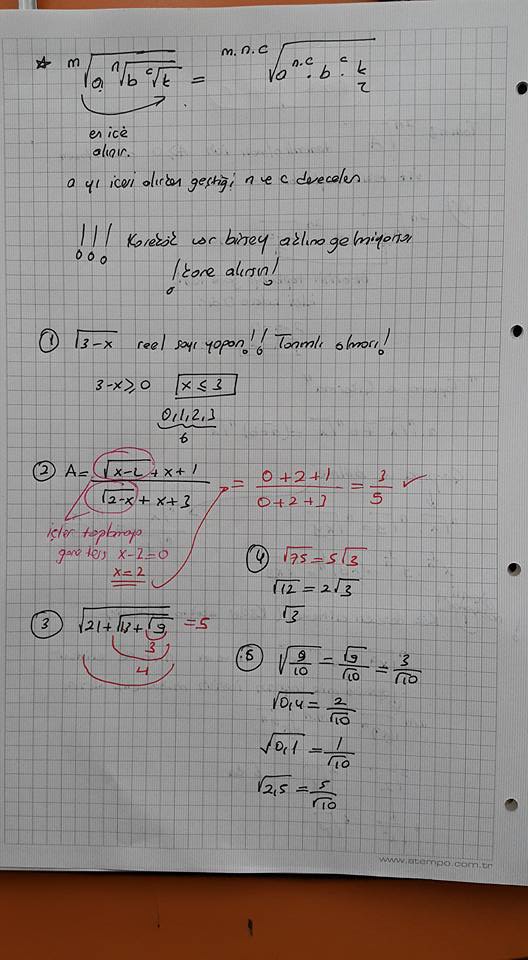 ☆ m√(a n√(b c√k)) = m.n.c√(a^n.c . b^c . k)
en içe
alınır.
a yı içeri alırken geçtiği n ve c dereceleri
!!! Karekök var birşey aklına gelmiyorsa
! kare alırsın!
① √3-x reel sayı yapan!! Tanımlı olması!
3-x≥0 x ≤ 3
0,1,2,3
6
② A= (√x-2 + x+1) / (√2-x + x+3) = (0+2+1) / (0+2+3) = 3/5 ✓
içler toplamaya
göre ters x-2=0
x=2
③ √(21+√(13+√9)) = 5
3
4
④ √75 = 5√3
√12 = 2√3
√3
5 √(9/10) = √9/√10 = 3/√10
√0,4 = 2/√10
√0,1 = 1/√10
√2,5 = 5/√10
www.atempo.com.tr